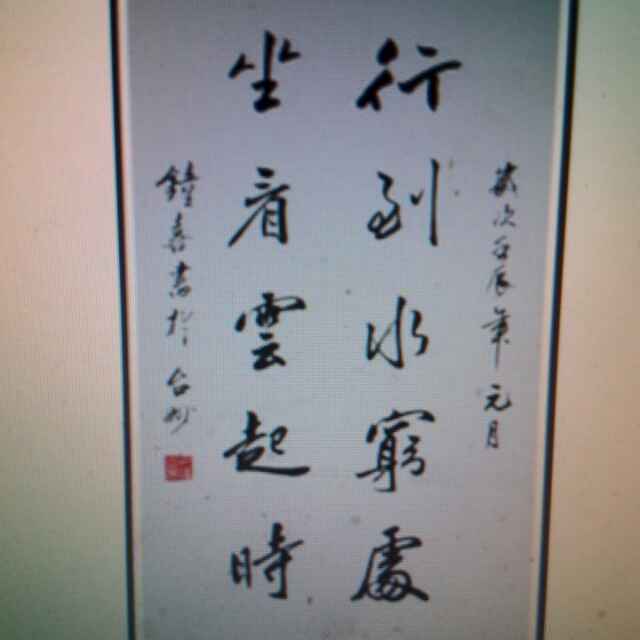 歲次壬辰年元月
行到水窮處
坐看雲起時
鐘喜書於台